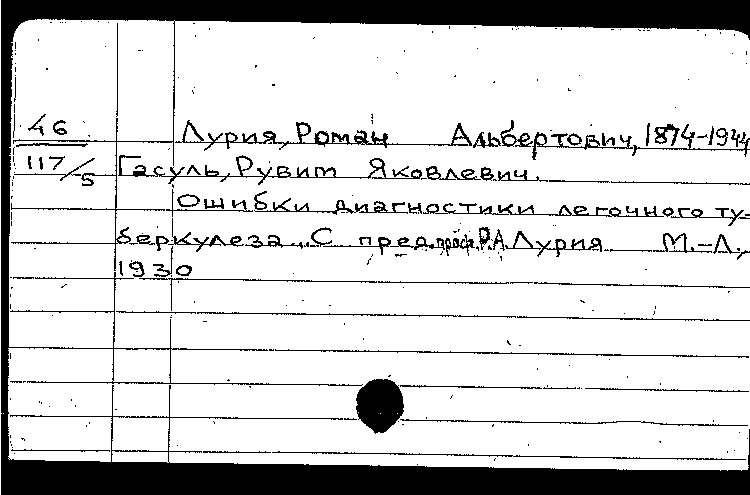 46 Лурия, Роман Альбертович, 1874-1944
117/5 Гасуль, Рувим Яковлевич.
Ошибки диагностики легочного ту-
беркулеза. С пред. проф. Р.А. Лурия М.-Л.,
1930